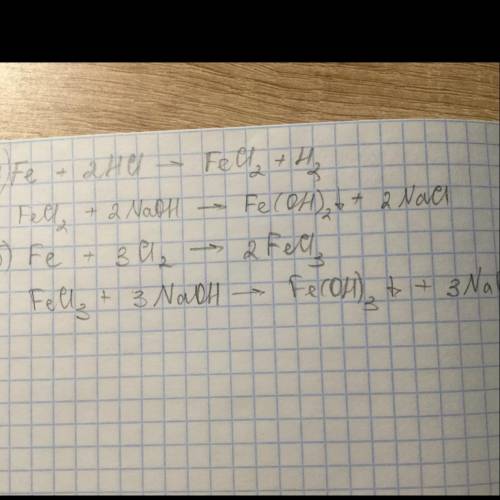 ) Fe + 2HCl → FeCl₂ + H₂
FeCl₂ + 2NaOH → Fe(OH)₂↓ + 2NaCl
) Fe + 3Cl₂ → 2FeCl₃
FeCl₃ + 3NaOH → Fe(OH)₃↓ + 3Na